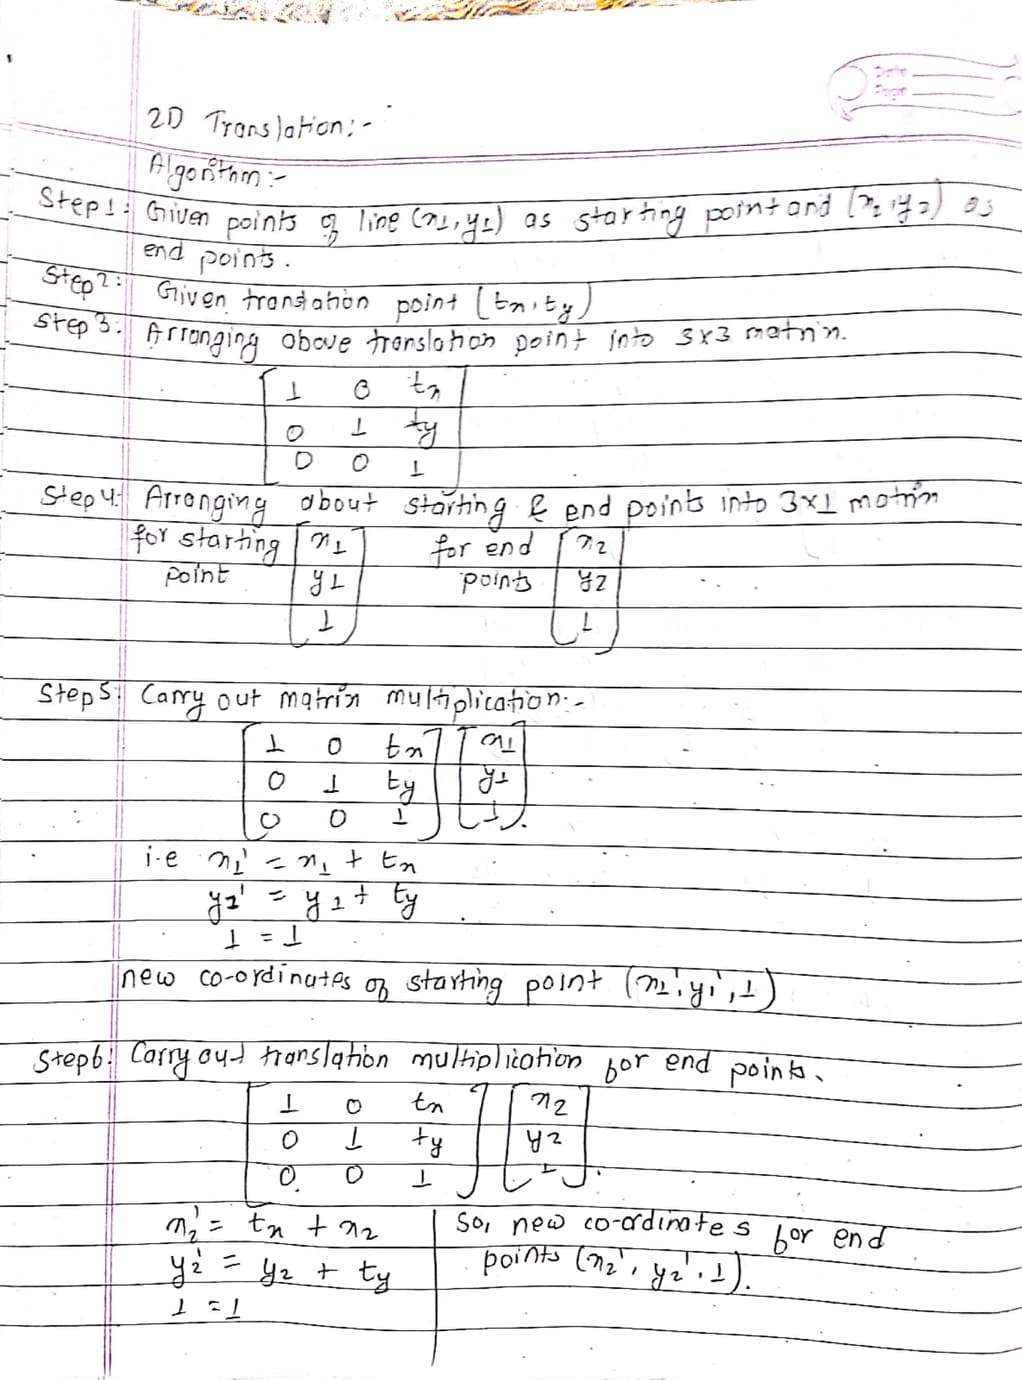 Date
Page
2D Translation:-
Algorithm:-
Step1: Given points of line (x1, y1) as starting point and (x2, y2) as
end points.
Step2: Given translation point (tx, ty)
Step 3: Arranging above translation point into 3x3 matrix.
1 0 tx
0 1 ty
0 0 1
Step 4: Arranging about starting & end points into 3x1 matrix
for starting [x1 for end [x2
point y1 points y2
1] 1]
Step 5: Carry out matrix multiplication:-
[1 0 tx] [x1]
0 1 ty y1
0 0 1 1
i.e x1' = x1 + tx
y1' = y1 + ty
1 = 1
new co-ordinates of starting point (x1', y1', 1)
Step6: Carry out translation multiplication for end points.
[1 0 tx] [x2]
0 1 ty y2
0 0 1 1
x2' = tx + x2
y2' = y2 + ty
1 = 1
So, new co-ordinates for end
points (x2', y2', 1).